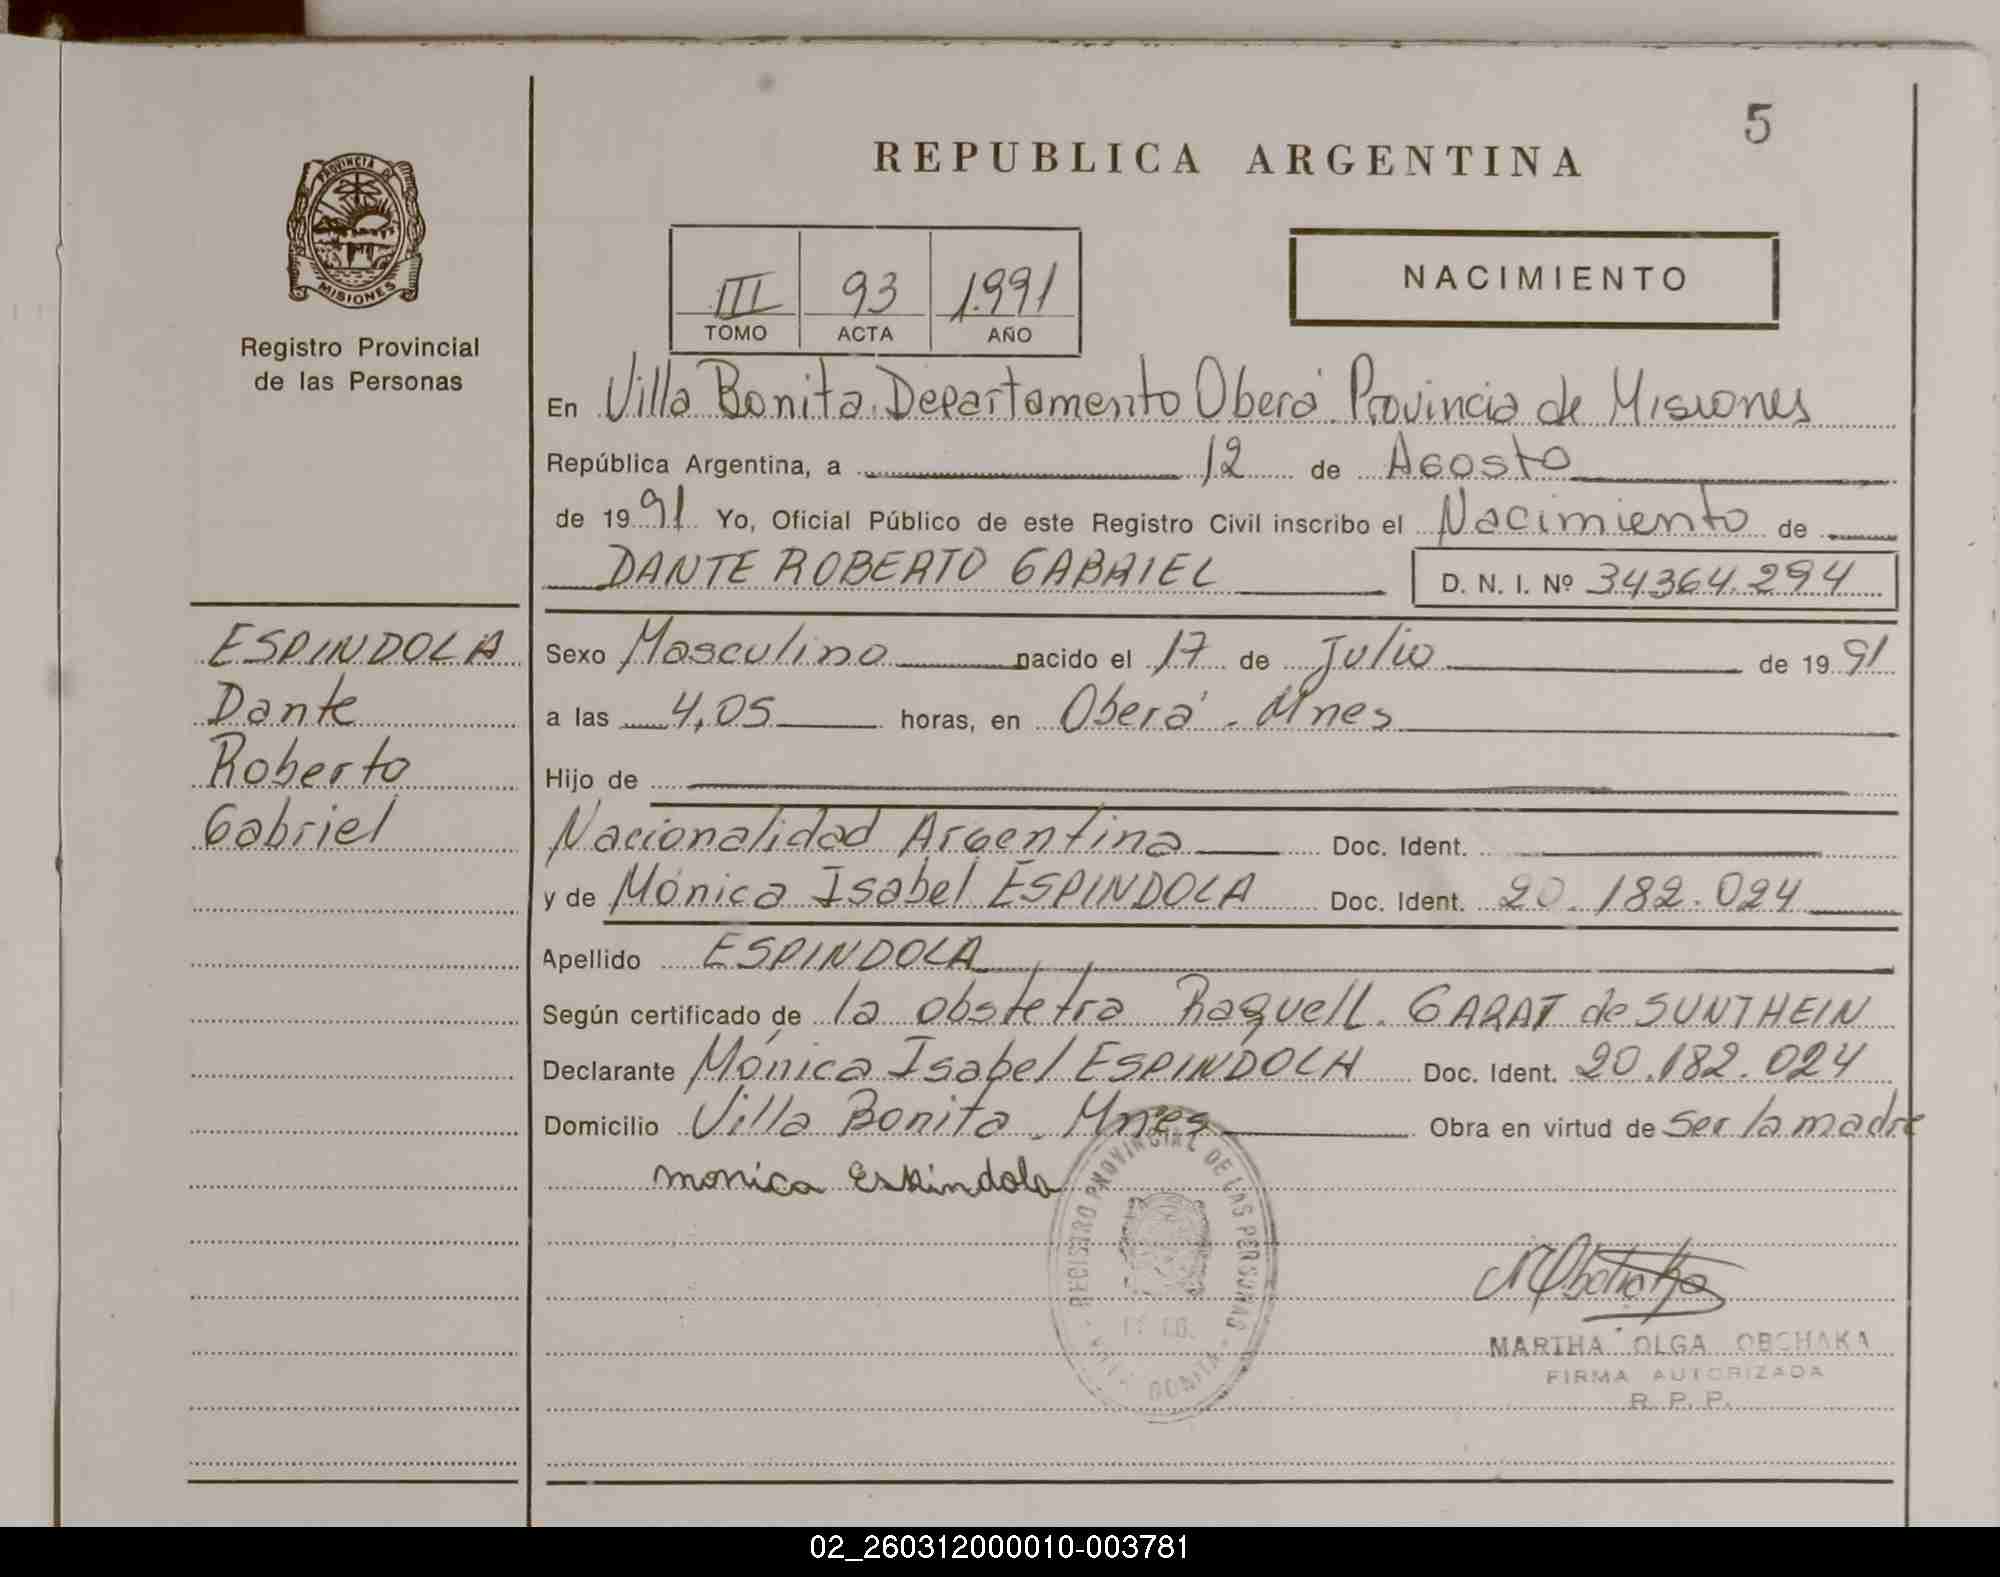 5
REPUBLICA ARGENTINA
PROVINCIA DE
MISIONES
Registro Provincial
de las Personas
III 93 1.991
TOMO ACTA AÑO
NACIMIENTO
En Villa Bonita. Departamento Oberá. Provincia de Misiones
República Argentina, a 12 de Agosto
de 1991 Yo, Oficial Público de este Registro Civil inscribo el Nacimiento de
DANTE ROBERTO GABRIEL D. N. I. Nº 34364.294
ESPINDOLA
Dante
Roberto
Gabriel
Sexo Masculino nacido el 17 de Julio de 1991
a las 4,05 horas, en Oberá - Mnes
Hijo de
Nacionalidad Argentina Doc. Ident.
y de Mónica Isabel ESPINDOLA Doc. Ident. 20.182.024
Apellido ESPINDOLA
Según certificado de la obstetra Raquel L. GARAT de SUNTHEIN
Declarante Mónica Isabel ESPINDOLA Doc. Ident. 20.182.024
Domicilio Villa Bonita - Mnes Obra en virtud de ser la madre
monica Espindola
REGISTRO PROVINCIAL DE LAS PERSONAS
BONITA
MARTHA OLGA OBCHAKA
FIRMA AUTORIZADA
R. P. P.
02_260312000010-003781